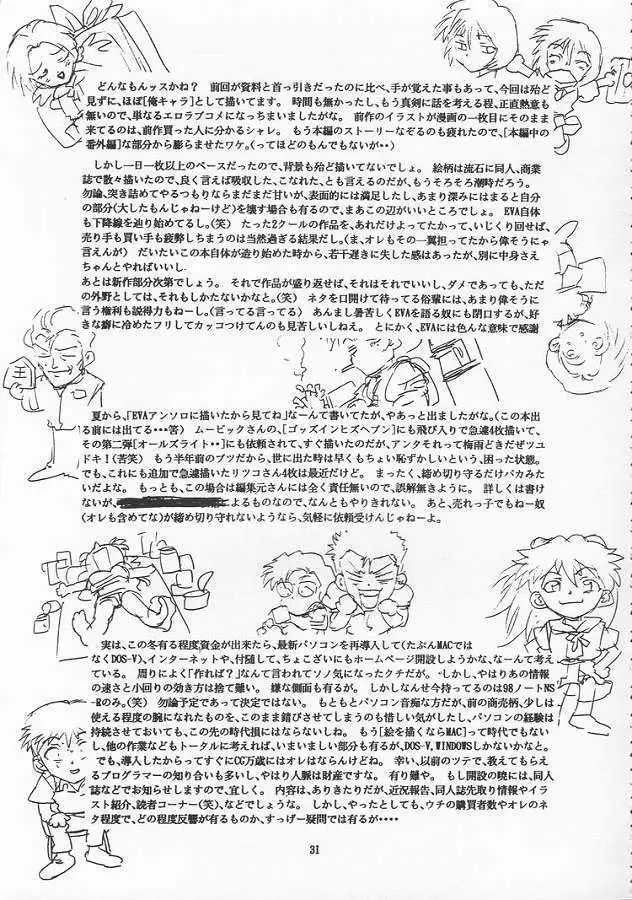 どんなもんッスかね？　前回が資料と首っ引きだったのに比べ、手が覚えた事もあって、今回は殆ど
見ずに、ほぼ[俺キャラ]として描いてます。　時間も無かったし、もう真剣に話を考える程、正直熱意も
無いので、単なるエロラブコメになっちまいましたがな。　前作のイラストが漫画の一枚目にそのまま
来てるのは、前作買った人に分かるシャレ。　もう本編のストーリーなぞるのも疲れたので、[本編中の
番外編]な部分から膨らませたワケ。（ってほどのもんでもないが・・）
しかし一日一枚以上のペースだったので、背景も殆ど描いてないでしょ。　絵柄は流石に同人、商業
誌で散々描いたので、良く言えば吸収した、こなれた、とも言えるのだが、もうそろそろ潮時だろう。
勿論、突き詰めてやるつもりならまだまだ甘いが、表面的には満足したし、あまり深みにはまると自分
の部分（大したもんじゃねーけど）を壊す場合も有るので、まあこの辺がいいところでしょ。　EVA自体
も下降線を辿り始めてるし。（笑）　たった2クールの作品を、あれだけよってたかって、いじくり回せば、
売り手も買い手も疲弊しちまうのは当然過ぎる結果だし。（ま、オレもその一翼担ってたから偉そうにゃ
言えんが）　だいたいこの本自体が造り始めた時から、若干遅きに失した感はあったが、別に中身さえ
ちゃんとやればいいし。
あとは新作部分次第でしょう。　それで作品が盛り返せば、それはそれでいいし、ダメであっても、ただ
の外野としては、それもしかたないかなと。（笑）　ネタを口開けて待ってる俗輩には、あまり偉そうに
言う権利も説得力もねーし。（言ってる言ってる）　あんまし暑苦しくEVAを語る奴にも閉口するが、好
きな癖に冷めたフリしてカッコつけてんのも見苦しいしねえ。　とにかく、EVAには色んな意味で感謝
王
夏から、「EVAアンソロに描いたから見てね」なーんて書いてたが、やあっと出ましたがな。（この本出
る前には出てる・・・答）　ムービックさんの、[ゴッズインヒズヘブン]にも飛び入りで急遽4枚描いて、
その第二弾[オールズライト・・]にも依頼されて、すぐ描いたのだが、アンタそれって梅雨どきだぜツユ
ドキ！（苦笑）　もう半年前のブツだから、世に出た時は早くもちょい恥ずかしいという、困った状態。
でも、これにも追加で急遽描いたリツコさん4枚は最近だけど。　まったく、締め切り守るだけバカみた
いだよな。　もっとも、この場合は編集元さんには全く責任無いので、誤解無きように。　詳しくは書け
ないが、によるものなので、なんともやりきれない。　あと、売れっ子でもねー奴
（オレも含めてな）が締め切り守れないようなら、気軽に依頼受けんじゃねーよ。
実は、この冬有る程度資金が出来たら、最新パソコンを再導入して（たぶんMACでは
なくDOS-V）、インターネットや、付随して、ちょこざいにもホームページ開設しようかな、なーんて考え
ている。　周りによく「作れば？」なんて言われてソノ気になったクチだが。　しかし、やはりあの情報
の速さと小回りの効き方は捨て難い。　嫌な側面も有るが。　しかしなんせ今持ってるのは98ノートNS
-Rのみ。（笑）　勿論予定であって決定ではない。　もともとパソコン音痴な方だが、前の商売柄、少しは
使える程度の腕になれたものを、このまま錆びさせてしまうのも惜しい気がしたし、パソコンの経験は
持続させておいても、この先の時代損にはならないしね。　もう[絵を描くならMAC]って時代でもない
し、他の作業などもトータルに考えれば、いまいましい部分も有るが、DOS-V、WINDOWSしかないかなと。
でも、導入したからってすぐにCG万歳にはオレはならんけどね。　幸い、以前のツテで、教えてもらえ
るプログラマーの知り合いも多いし、やはり人脈は財産ですな。　有り難や。　もし開設の暁には、同人
誌などでお知らせしますので、宜しく。　内容は、ありきたりだが、近況報告、同人誌先取り情報やイラ
スト紹介、読者コーナー（笑）、などでしょうな。　しかし、やったとしても、ウチの購買者数やオレのネ
タ程度で、どの程度反響が有るものか、すっげー疑問では有るが・・・・
31